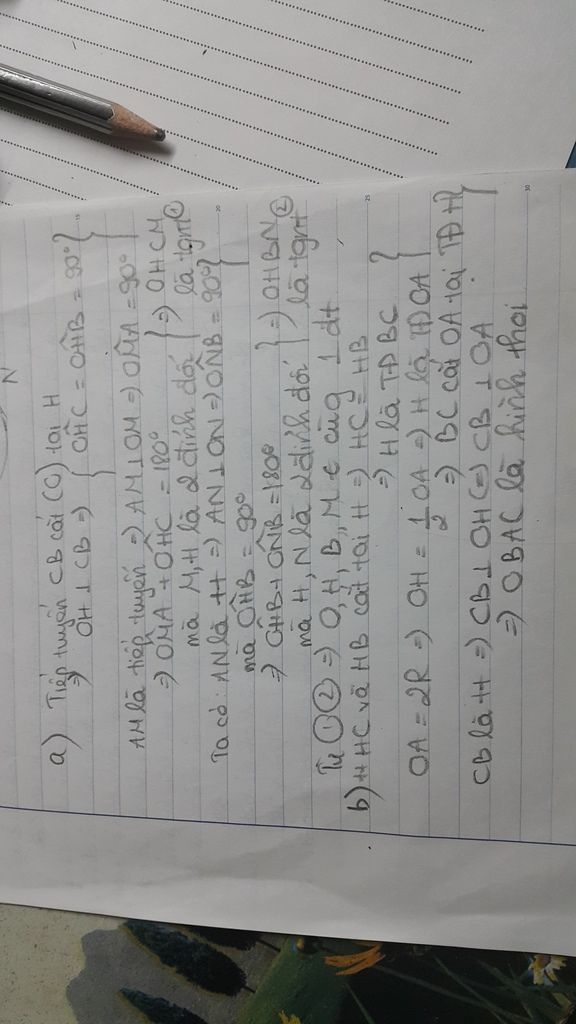 N
a) Tiếp tuyến CB cắt (O) tại H
=> OH ⊥ CB => { OĤC = OĤB = 90° }
AM là tiếp tuyến => AM ⊥ OM => OM̂A = 90°
=> OM̂A + OĤC = 180° } => OHCM
mà M, H là 2 đỉnh đối } là tgnt ①
Ta có: AN là tt => AN ⊥ ON => ON̂B = 90° }
mà OĤB = 90°
=> OĤB + ON̂B = 180° } => OHBN
mà H, N là 2 đỉnh đối } là tgnt ②
Từ ① ② => O, H, B, M ∈ cùng 1 đt
b) tt HC và HB cắt tại H => HC = HB
=> H là TĐ BC }
OA = 2R => OH = 1/2 OA => H là TĐ OA }
=> BC cắt OA tại TĐ H }
CB là tt => CB ⊥ OH (=) CB ⊥ OA
=> OBAC là hình thoi
15
20
25
30